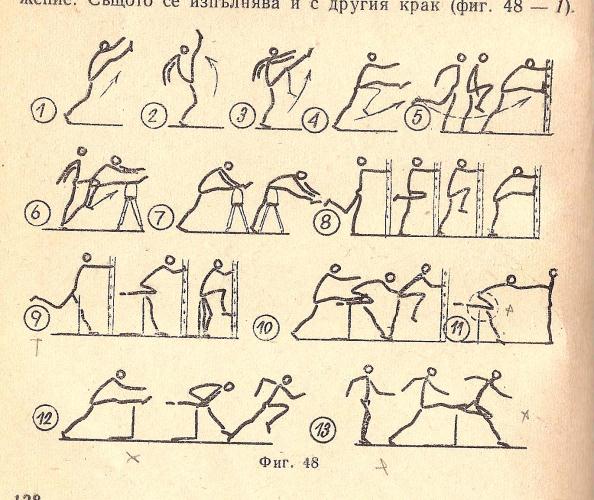 жение. Същото се изпълнява и с другия крак (фиг. 48 — 1).
1 2 3 4 5
6 7 8
9 10 11
12 13
Фиг. 48
128